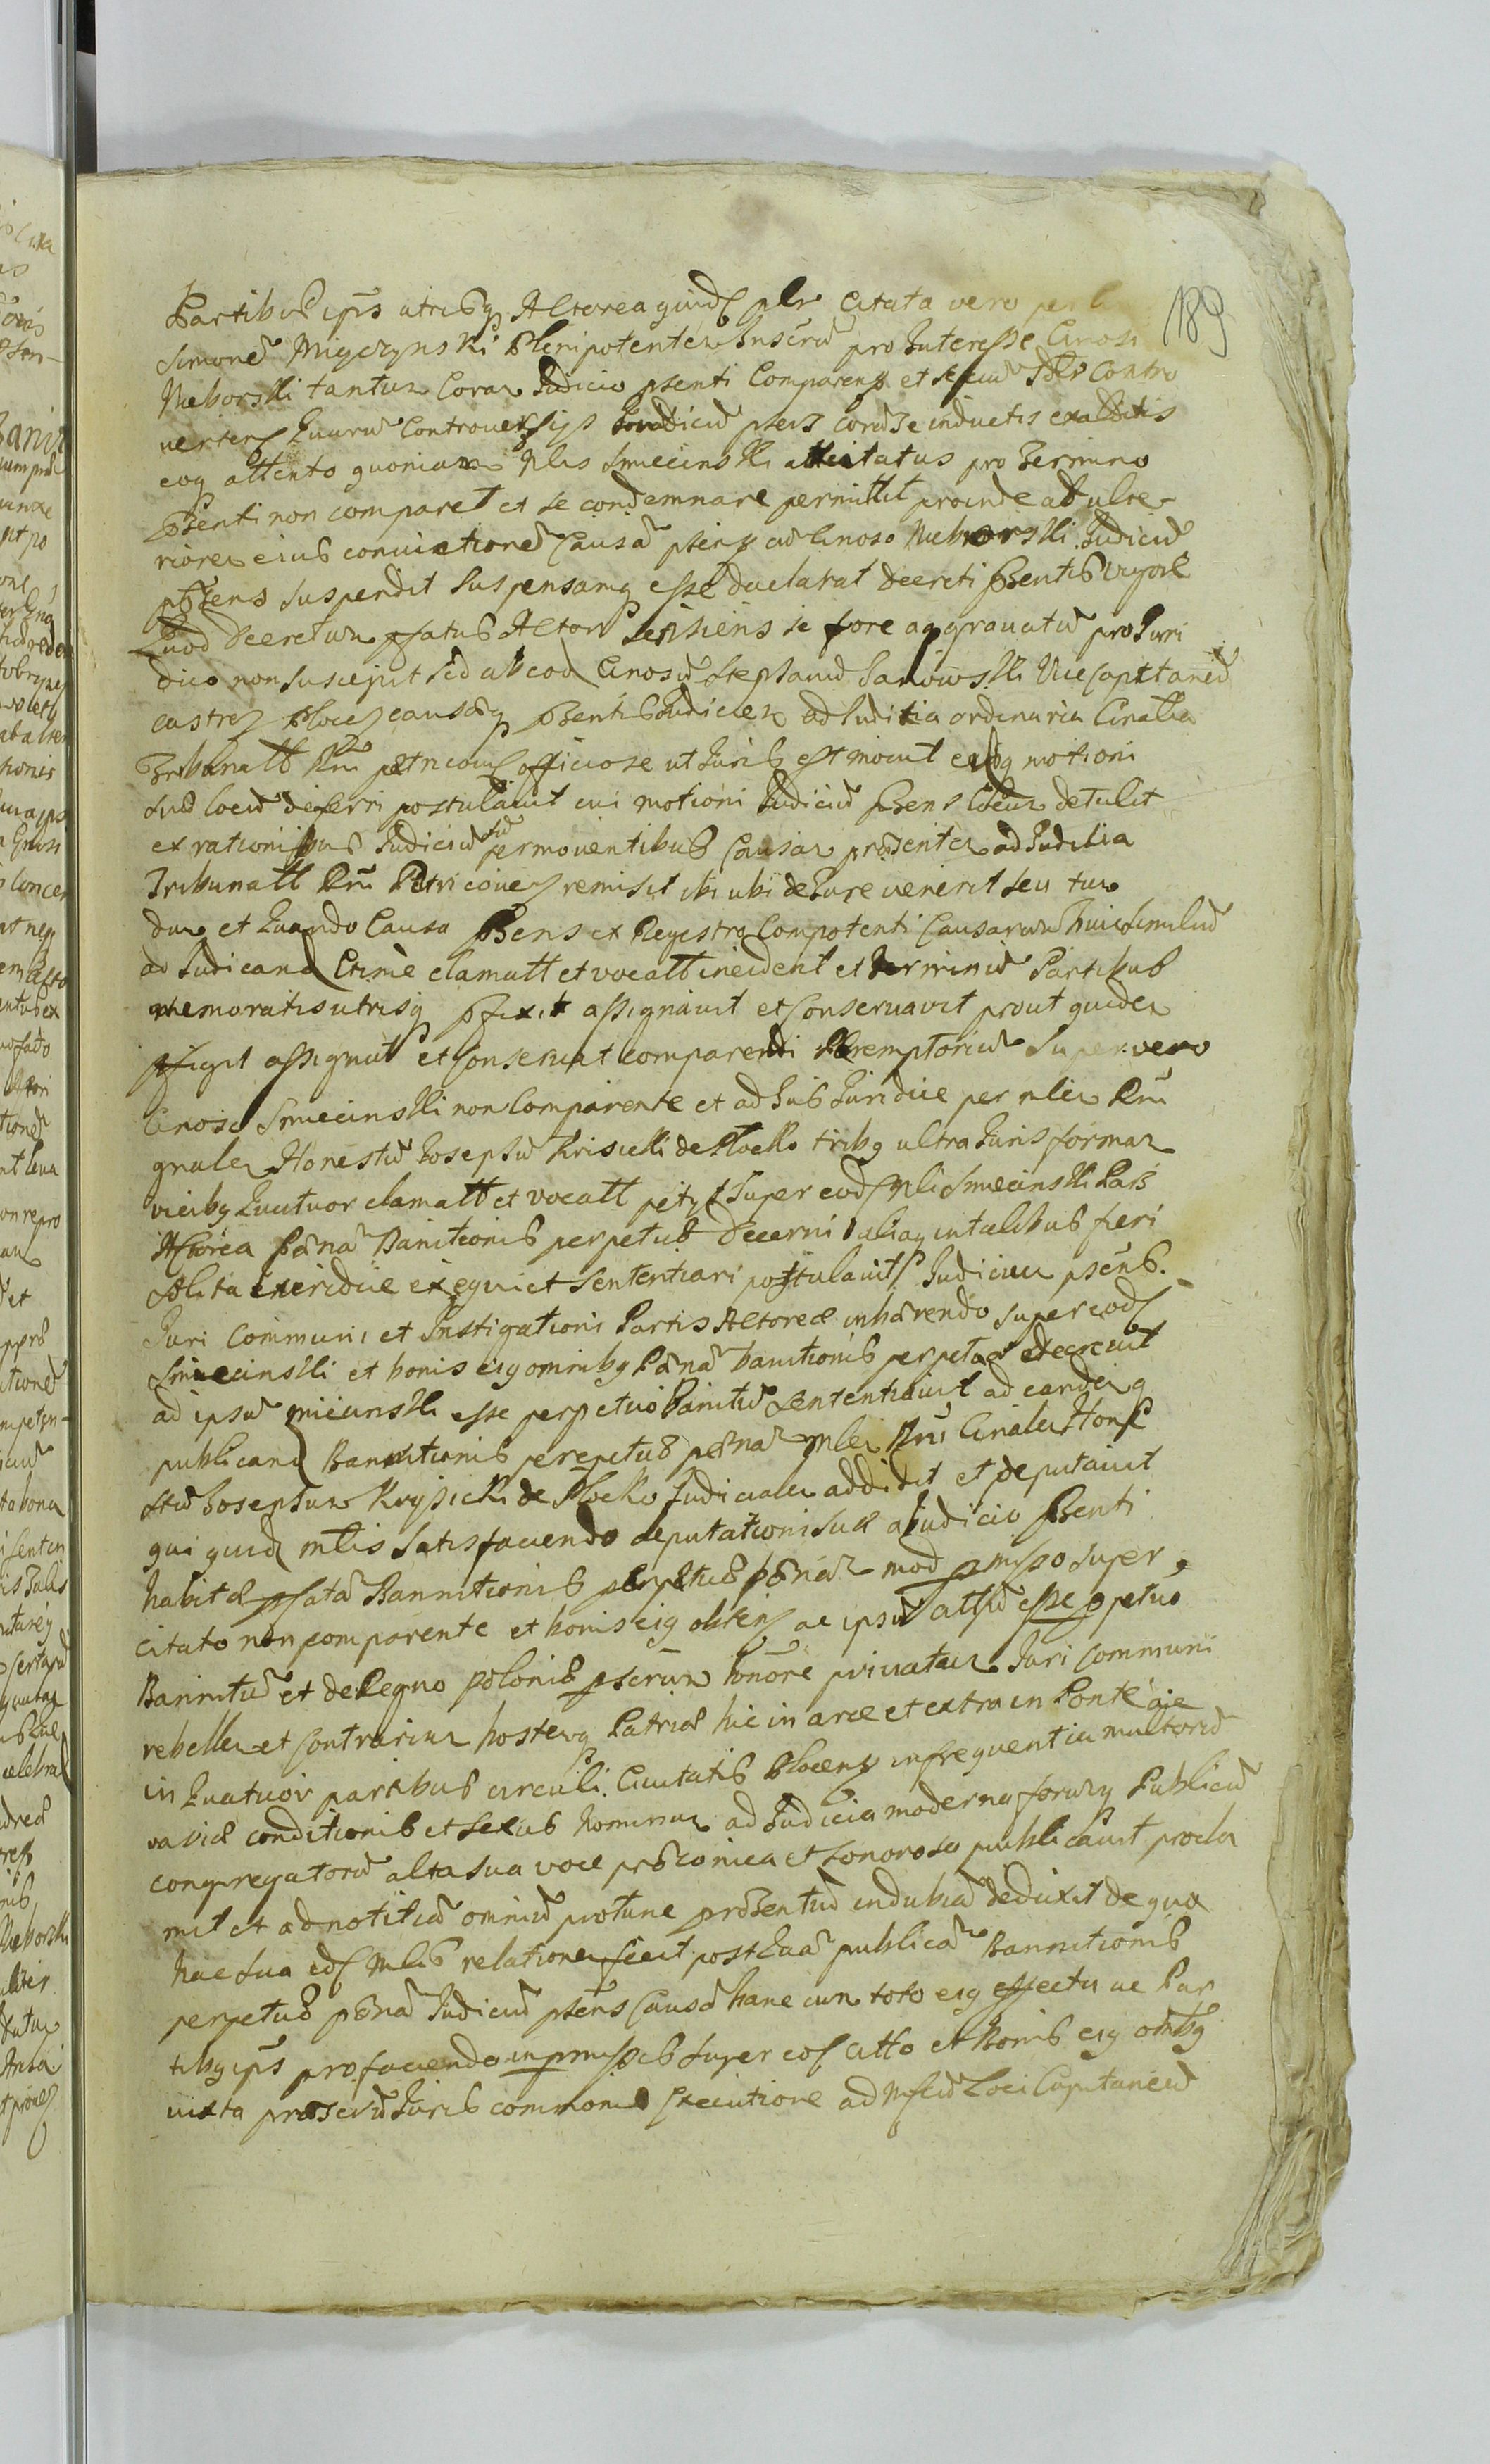 189
Partibus ips̄ utrisq Actorea quidē plr Citata vero per
Simonē Migczynski Plenipotentem Inscrū pro Interesse Gnosi
Nieborski tantum Coram Judicio p̄senti Comparens et secū plr Contro
vertens Quarū Controversijs Judiciū p̄sens corā se inductis exauditis
eoq attento quoniam Nlis Smiecinski attcitatus pro Termino
p̄senti non comparet et se condemnare permittit proinde ab ulte
riorem eius convictionē Causā p̄sens cū Gnoso Nieborski Judiciū
p̄sens suspendit suspensamq esse declarat decreti p̄sentis vigore
Quod decretum p̄fatus Actor sensiens se fore aggravatū pro Juri
dico non suscepit sed ab eod Gnosū Stephanū Sarnowski Vice Capitaneū
castren Plocen causāq p̄sentis Judicem ad Judicia ordinaria Gnalia
Tribunall Rnī Petricovien officiose ut Juris est movit eidq motioni
suā locū deferri postulavit cui motioni Judiciū p̄sens locum detulit
ex rationibus Judiciū sū permoventibus Causam præsentem ad Judicia
Tribunall Rnī Petricovien remisit ibi ubi de Jure venerit seu tun
dum et Quando Causa p̄sens ex Regestro Competenti Causarum huic similiū
ad Judicand Ctime clamatt et vocatt inciderit et Terminū Partibus
memoratis utrisq p̄fixit assignavit et Conservavit prout quidem
p̄figit assignat et Conservat comparendi Peremptoriū Super vero
Gnoso Smiecinski non Comparente et ad Jus Juridice per mlem Rnī
gnalem Honestū Josephū Krisicki de Plocko tribq ultra Juris formam
vicibq Quatuor clamatt et vocatt petyt Super eod Nli Smiecinski Pars
Actorea pœnā Banitionis perpetuæ decerni aliaq in talibus fieri
solita Juridice exequi et Sententiari postulavit Judicium p̄sens.
Juri Communi et Instigationi Partis Actoreæ inhærendo super eod
Smiecinski et bonis eiq omnibq Pœnā banitionis perpetuæ decrevit
ad ipsū miecinski esse perpetuo Banitū Sententiavit ad eandemq
publicand Bannitionis perepetuæ pœnā mlem Rnī Gnalem Hone
stū Josephum Krysicki de Plocko Judicialem addidit et deputavit
qui quid mlis satisfaciendo deputationi suæ a Judicio p̄senti
habitæ p̄fatā Bannitionis perpetuæ pœnā mod p̄misso super
citato non comparente et bonis eiq obtens ac ipsū attū esse p̄petuo
Bannitū et de Regno Poloniæ p̄scrum honore privatum Juri communi
rebellem et Contrarium hostemq Patriæ hic in arce et extra in Ponte æie
in Quatuor partibus circuli Civitatis Plocens in frequentia multorū
variæ conditionis et sexus hominum ad Judicia moderna forumq Publicū
congregatorū alta sua voce præconica et sonorosa publicavit procla
mit et ad notitiā omniū protunc præsentiū indubiā deduxit de qua
hac sua eod mlis relationem fecit post Quā publicā Bannitionis
perpetuæ pœnā Judiciū p̄sens Causā hanc cum toto eiq effectu ac Par
tibq ips̄ pro facienda in p̄missis super eod citto et Bonis eiq omibq
iuxta præscrū Juris communis Executione ad Mfcū Loci Capitaneū